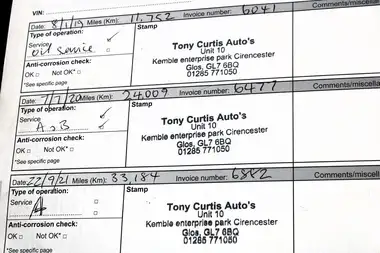 VIN:
Date: 8/1/19 Miles (Km): 11,752 Invoice number: 6041
Type of operation: Stamp Comments/miscella
Service
oil service
Anti-corrosion check:
OK □ Not OK* □
*See specific page
Tony Curtis Auto's
Unit 10
Kemble enterprise park Cirencester
Glos, GL7 6BQ
01285 771050
Date: 7/7/20 Miles (Km): 24,009 Invoice number: 6477
Type of operation: Stamp Comments/miscella
Service
A>B
Anti-corrosion check:
OK □ Not OK* □
*See specific page
Tony Curtis Auto's
Unit 10
Kemble enterprise park Cirencester
Glos, GL7 6BQ
01285 771050
Date: 22/9/21 Miles (Km): 33,184 Invoice number: 6882
Type of operation: Stamp Comments/miscella
Service □
A □
Anti-corrosion check:
OK □ Not OK* □
*See specific page
Tony Curtis Auto's
Unit 10
Kemble enterprise park Cirencester
Glos, GL7 6BQ
01285 771050